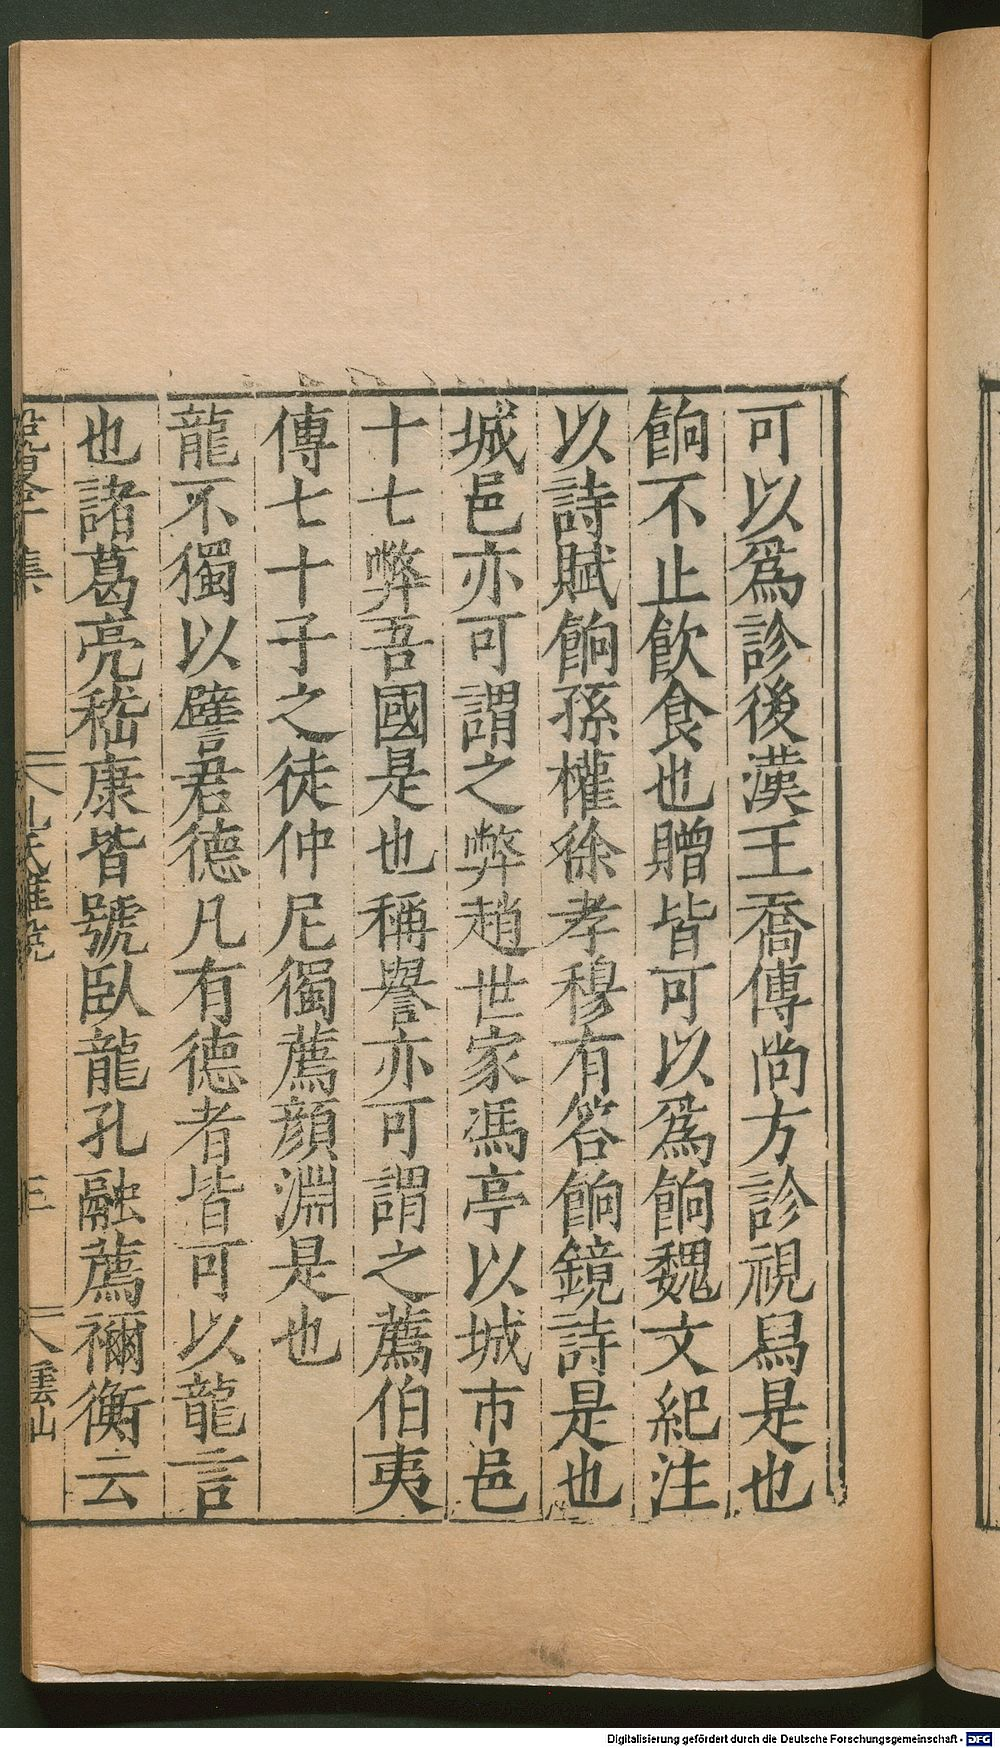 可以爲診後漢王喬傳尚方診視舄是也
餉不止飲食也贈皆可以爲餉魏文紀注
以詩賦餉孫權徐孝穆有答餉鏡詩是也
城邑亦可謂之弊趙世家馮亭以城市邑
十七弊吾國是也稱譽亦可謂之薦伯夷
傳七十子之徒仲尼獨薦顏淵是也
龍不獨以譬君德凡有德者皆可以龍言
也諸葛亮嵇康皆號臥龍孔融薦禰衡云
Digitalisierung gefördert durch die Deutsche Forschungsgemeinschaft - DFG